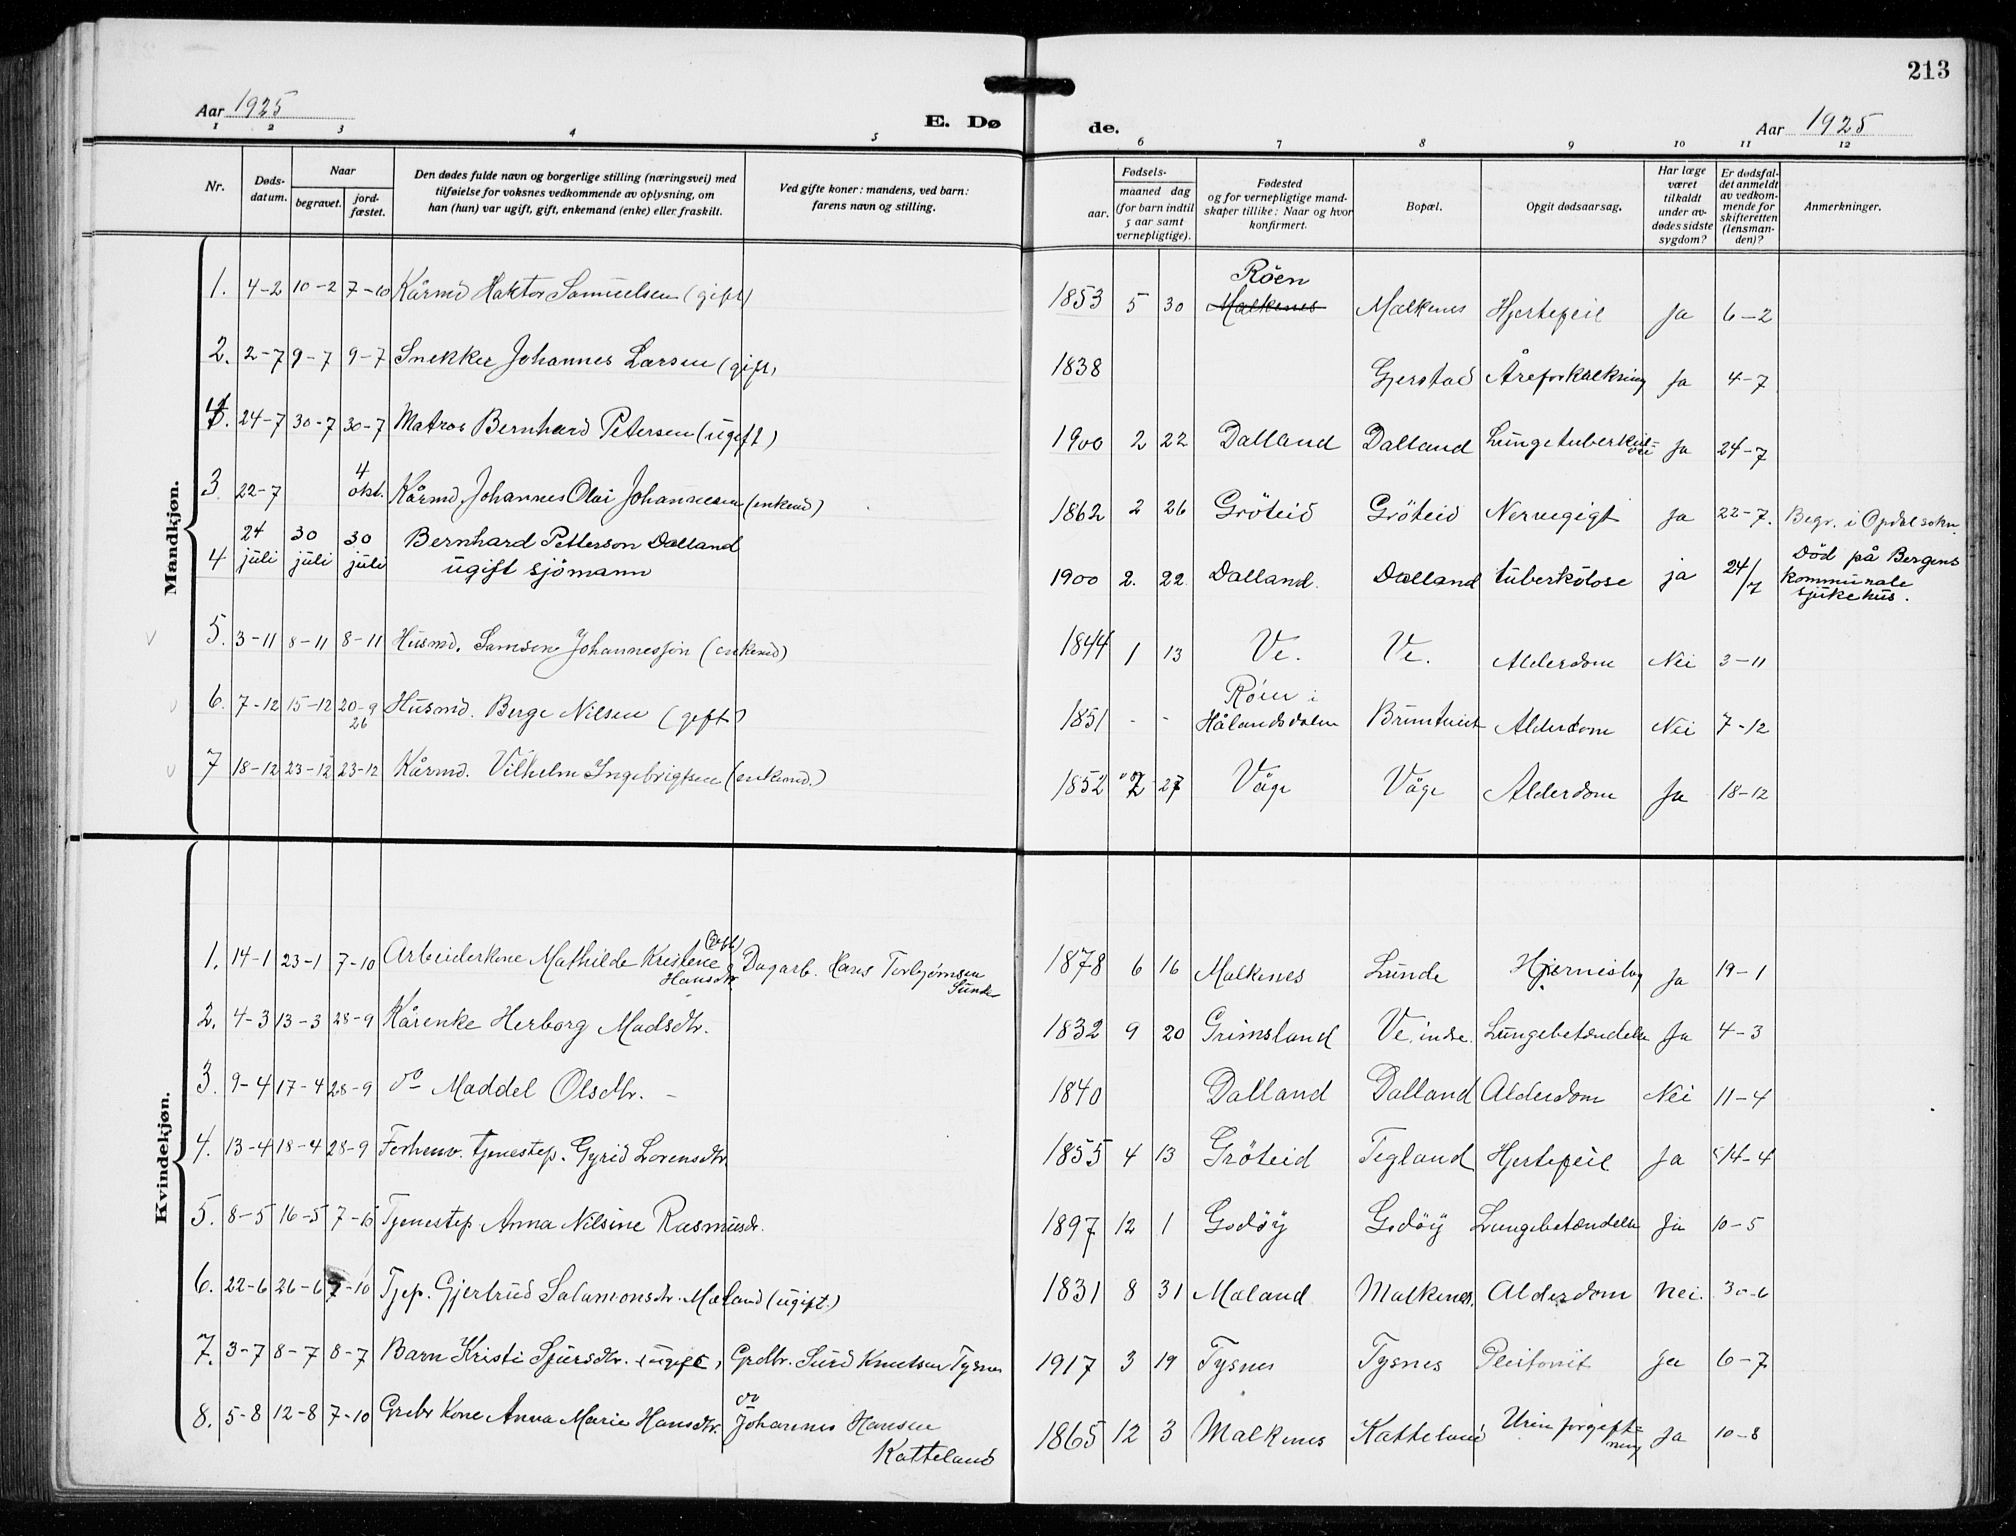 213
Aar 1925
E. Dø de.
Aar 1925
1 2 3 4 5 6 7 8 9 10 11 12
Nr.
Døds-datum.
Naar
begravet.
jord-fæstet.
Den dødes fulde navn og borgerlige stilling (næringsvei) med
tilføielse for voksnes vedkommende av oplysning, om
han (hun) var ugift, gift, enkemand (enke) eller fraskilt.
Ved gifte koner: mandens, ved barn:
farens navn og stilling.
Fødsels-
aar.
maaned dag
(for barn indtil
5 aar samt
vernepligtige).
Fødested
og for vernepligtige mand-
skaper tillike: Naar og hvor
konfirmert.
Bopæl.
Opgit dødsaarsag.
Har læge
været
tilkaldt
under av-
dødes sidste
sygdom?
Er dødsfal-
det anmeldt
av vedkom-
mende for
skifteretten
(lensman-
den)?
Anmerkninger.
Mandkjøn.
1. 4-2 10-2 7-10 Kårmd Haktor Samuelsen (gift) 1853 5 30 Røen Malkenes Malkenes Hjertefeil Ja 6-2
2. 2-7 9-7 9-7 Snekker Johannes Larsen (gift) 1838 Gjerstad Åreforkalkning Ja 4-7
4. 24-7 30-7 30-7 Matros Bernhard Petersen (ugift) 1900 2 22 Dalland Dalland Lungetuberkulose Ja 24-7
3 22-7 4 okt. Kårmd Johannes Olai Johannesen (enkemd) 1862 2 26 Gröteid Gröteid Nervegigt Ja 22-7. Begr. i Opdal sokn.
4 24 juli 30 juli 30 juli Bernhard Petterson Dalland
ugift sjömann 1900 2. 22 Dalland. Dalland tuberkulose ja 24/7 Död på Bergens
kommunale
sjukehus.
5. 3-11 8-11 8-11 Husmd. Samson Johannesson (enkemd) 1844 1 13 Ve. Ve. Alderdom Nei 3-11
6. 7-12 15-12 20-9 26 Husmd. Berge Nilsen (gift) 1851 - - Røen i
Hålandsdalen Alderdom Nei 7-12
7 18-12 23-12 23-12 Kårmd. Vilhelm Ingebrigtsen (enkemd.) 1852 27 Våge Våge Alderdom Ja 18-12
Kvindekjøn.
1. 14-1 23-1 7-10 Arbeiderkone Mathilde Kristene (gift)
Hansdtr Dagarb. Hans Torbjørnsen
Lunde 1878 6 16 Malkenes Lunde Hjerneslag Ja 19-1
2. 4-3 13-3 28-9 Kårenke Herborg Madsdtr. 1832 9 20 Grimsland Ve. indre. Lungebetændelse Ja 4-3
3. 9-4 17-4 28-9 do Maddel Olsdtr. - 1840 Dalland Dalland Alderdom Nei 11-4
4. 13-4 18-4 28-9 Forhenv. tjenestep. Gyrid Lorensdtr. 1855 4 13 Gröteid Tegland Hjertefeil Ja 14-4
5. 8-5 16-5 7-10 Tjenestep Anna Nilsine Rasmusdr. 1897 12 1 Godöy Godöy Lungebetændelse Ja 10-5
6. 22-6 26-6 7-10 Tjep. Gjertrud Salamonsdtr. Maland (ugift.) 1831 8 31 Maland Malkenes. Alderdom Nei. 30-6
7. 3-7 8-7 8-7 Barn Kristi Sjursdtr. (ugift) Grdbr. Sjurd Knutsen Tysnes 1917 3 19 Tysnes Tysnes Peritonit Ja 6-7
8. 5-8 12-8 7-10 Grdbr Kone Anna Marie Hansdtr. do
Johannes Hansen
Katteland 1865 12 3 Malkenes Katteland Urinforgiftning Ja 10-8